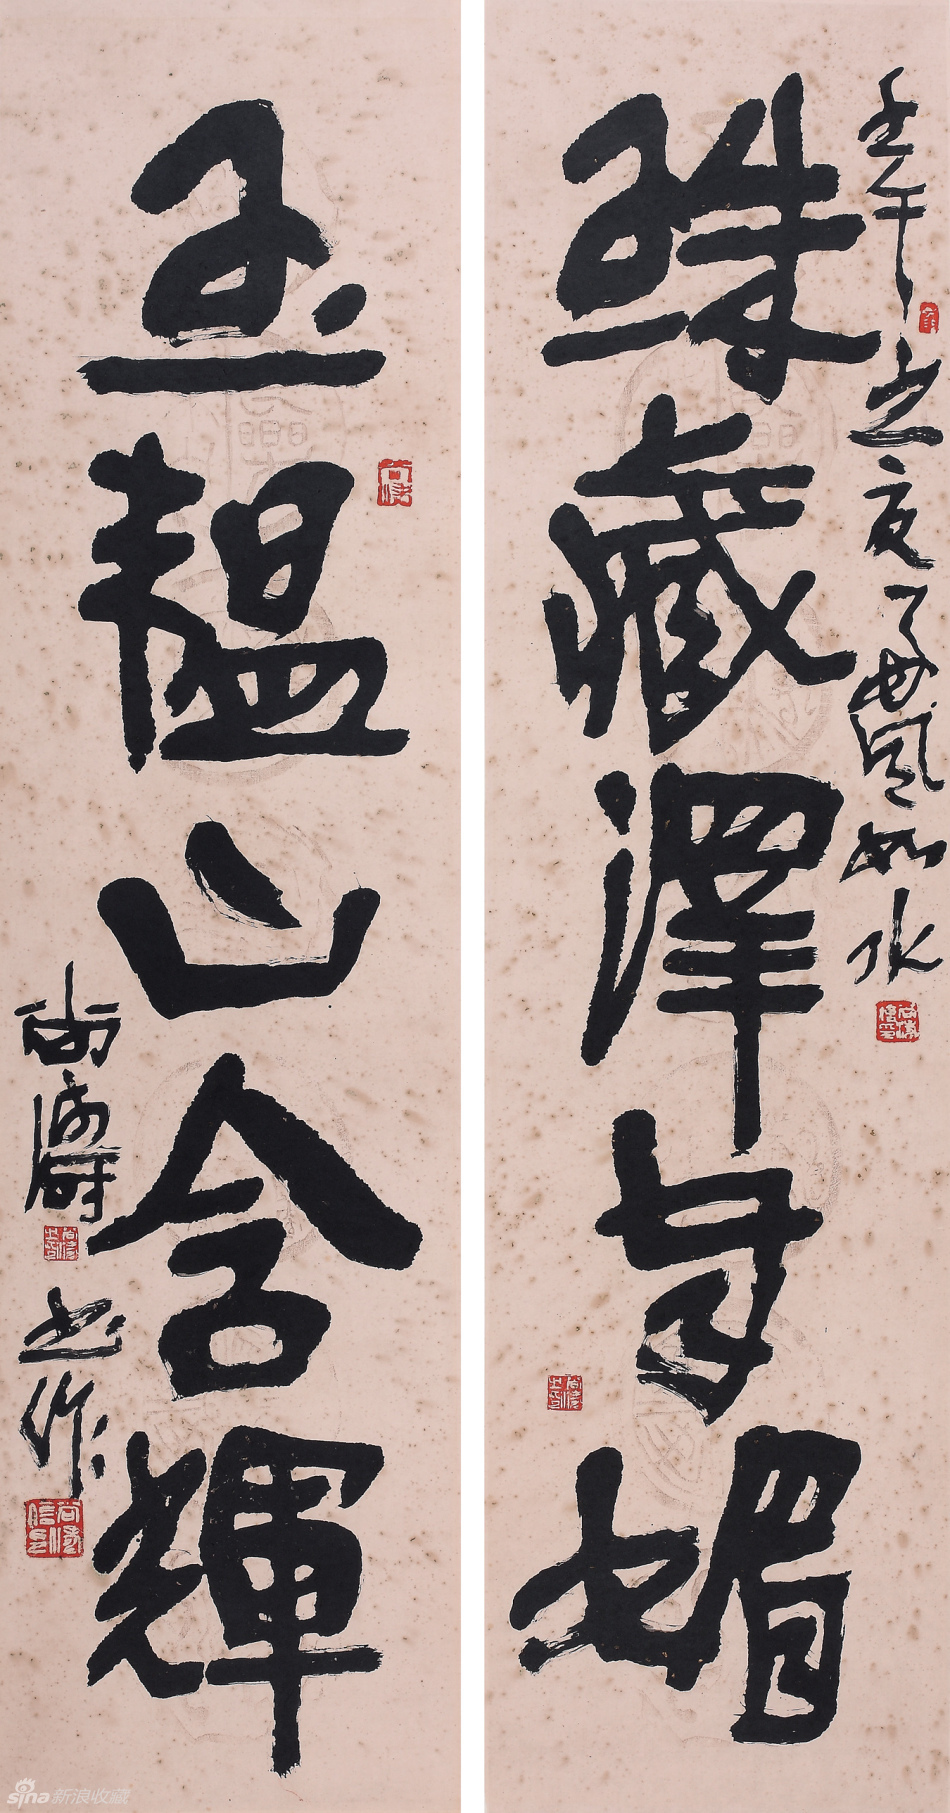 壬午之夏
風如水
珠藏澤自媚
玉韞山含輝
尚濤書作
sina新浪收藏